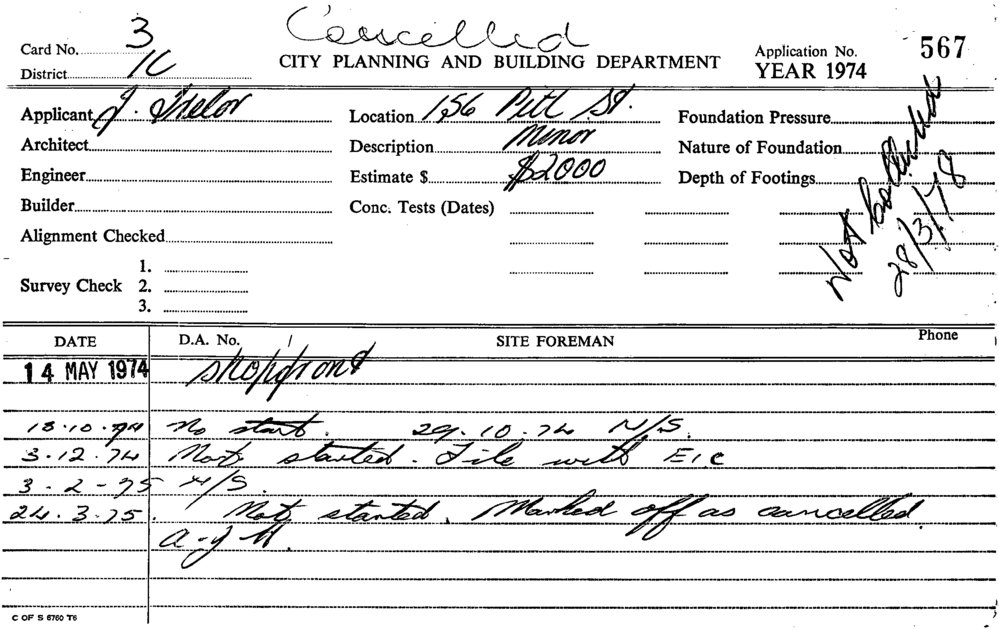 Cancelled
Card No. 3
District 1C
CITY PLANNING AND BUILDING DEPARTMENT
Application No. 567
YEAR 1974
Applicant J.
Location 156 Pitt St.
Foundation Pressure
Architect
Description Minor
Nature of Foundation
Engineer
Estimate $ $2000
Depth of Footings
Builder
Conc. Tests (Dates)
Not Collected
28/3/78
Alignment Checked
Survey Check 1.
2.
3.
DATE D.A. No. / SITE FOREMAN Phone
14 MAY 1974 shopfront
18.10.74 No start. 29.10.74 N/S.
3.12.74 Not started. File with EIC
3-2-75 N/S.
24.3.75. Not started. Marked off as cancelled.
C OF S 6760 T6